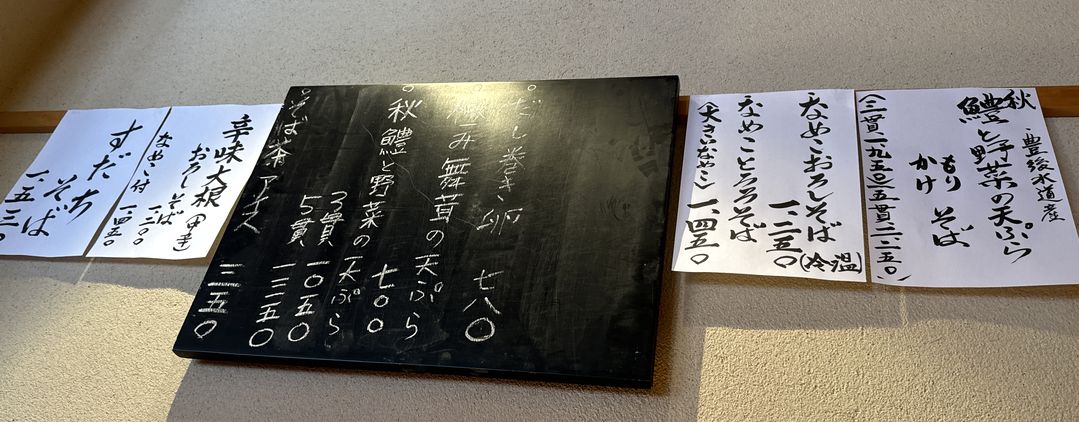 豊後水道産
秋
鱧と野菜の天ぷら
もり
かけ そば
(三貫一九五〇 五貫二二五〇)
なめこおろしそば(冷温)
一、二五〇
なめことろろそば
(大きいなめこ) 一、四五〇
。だし巻き卵 七八〇
。極み舞茸の天ぷら
七〇〇
。秋鱧と野菜の天ぷら
3貫 一〇五〇
5貫 一三五〇
。そば茶アイス 三五〇
辛味大根(中辛)
おろしそば
一、二〇〇
なめこ付 一、四五〇
すだち
そば
一、五三〇